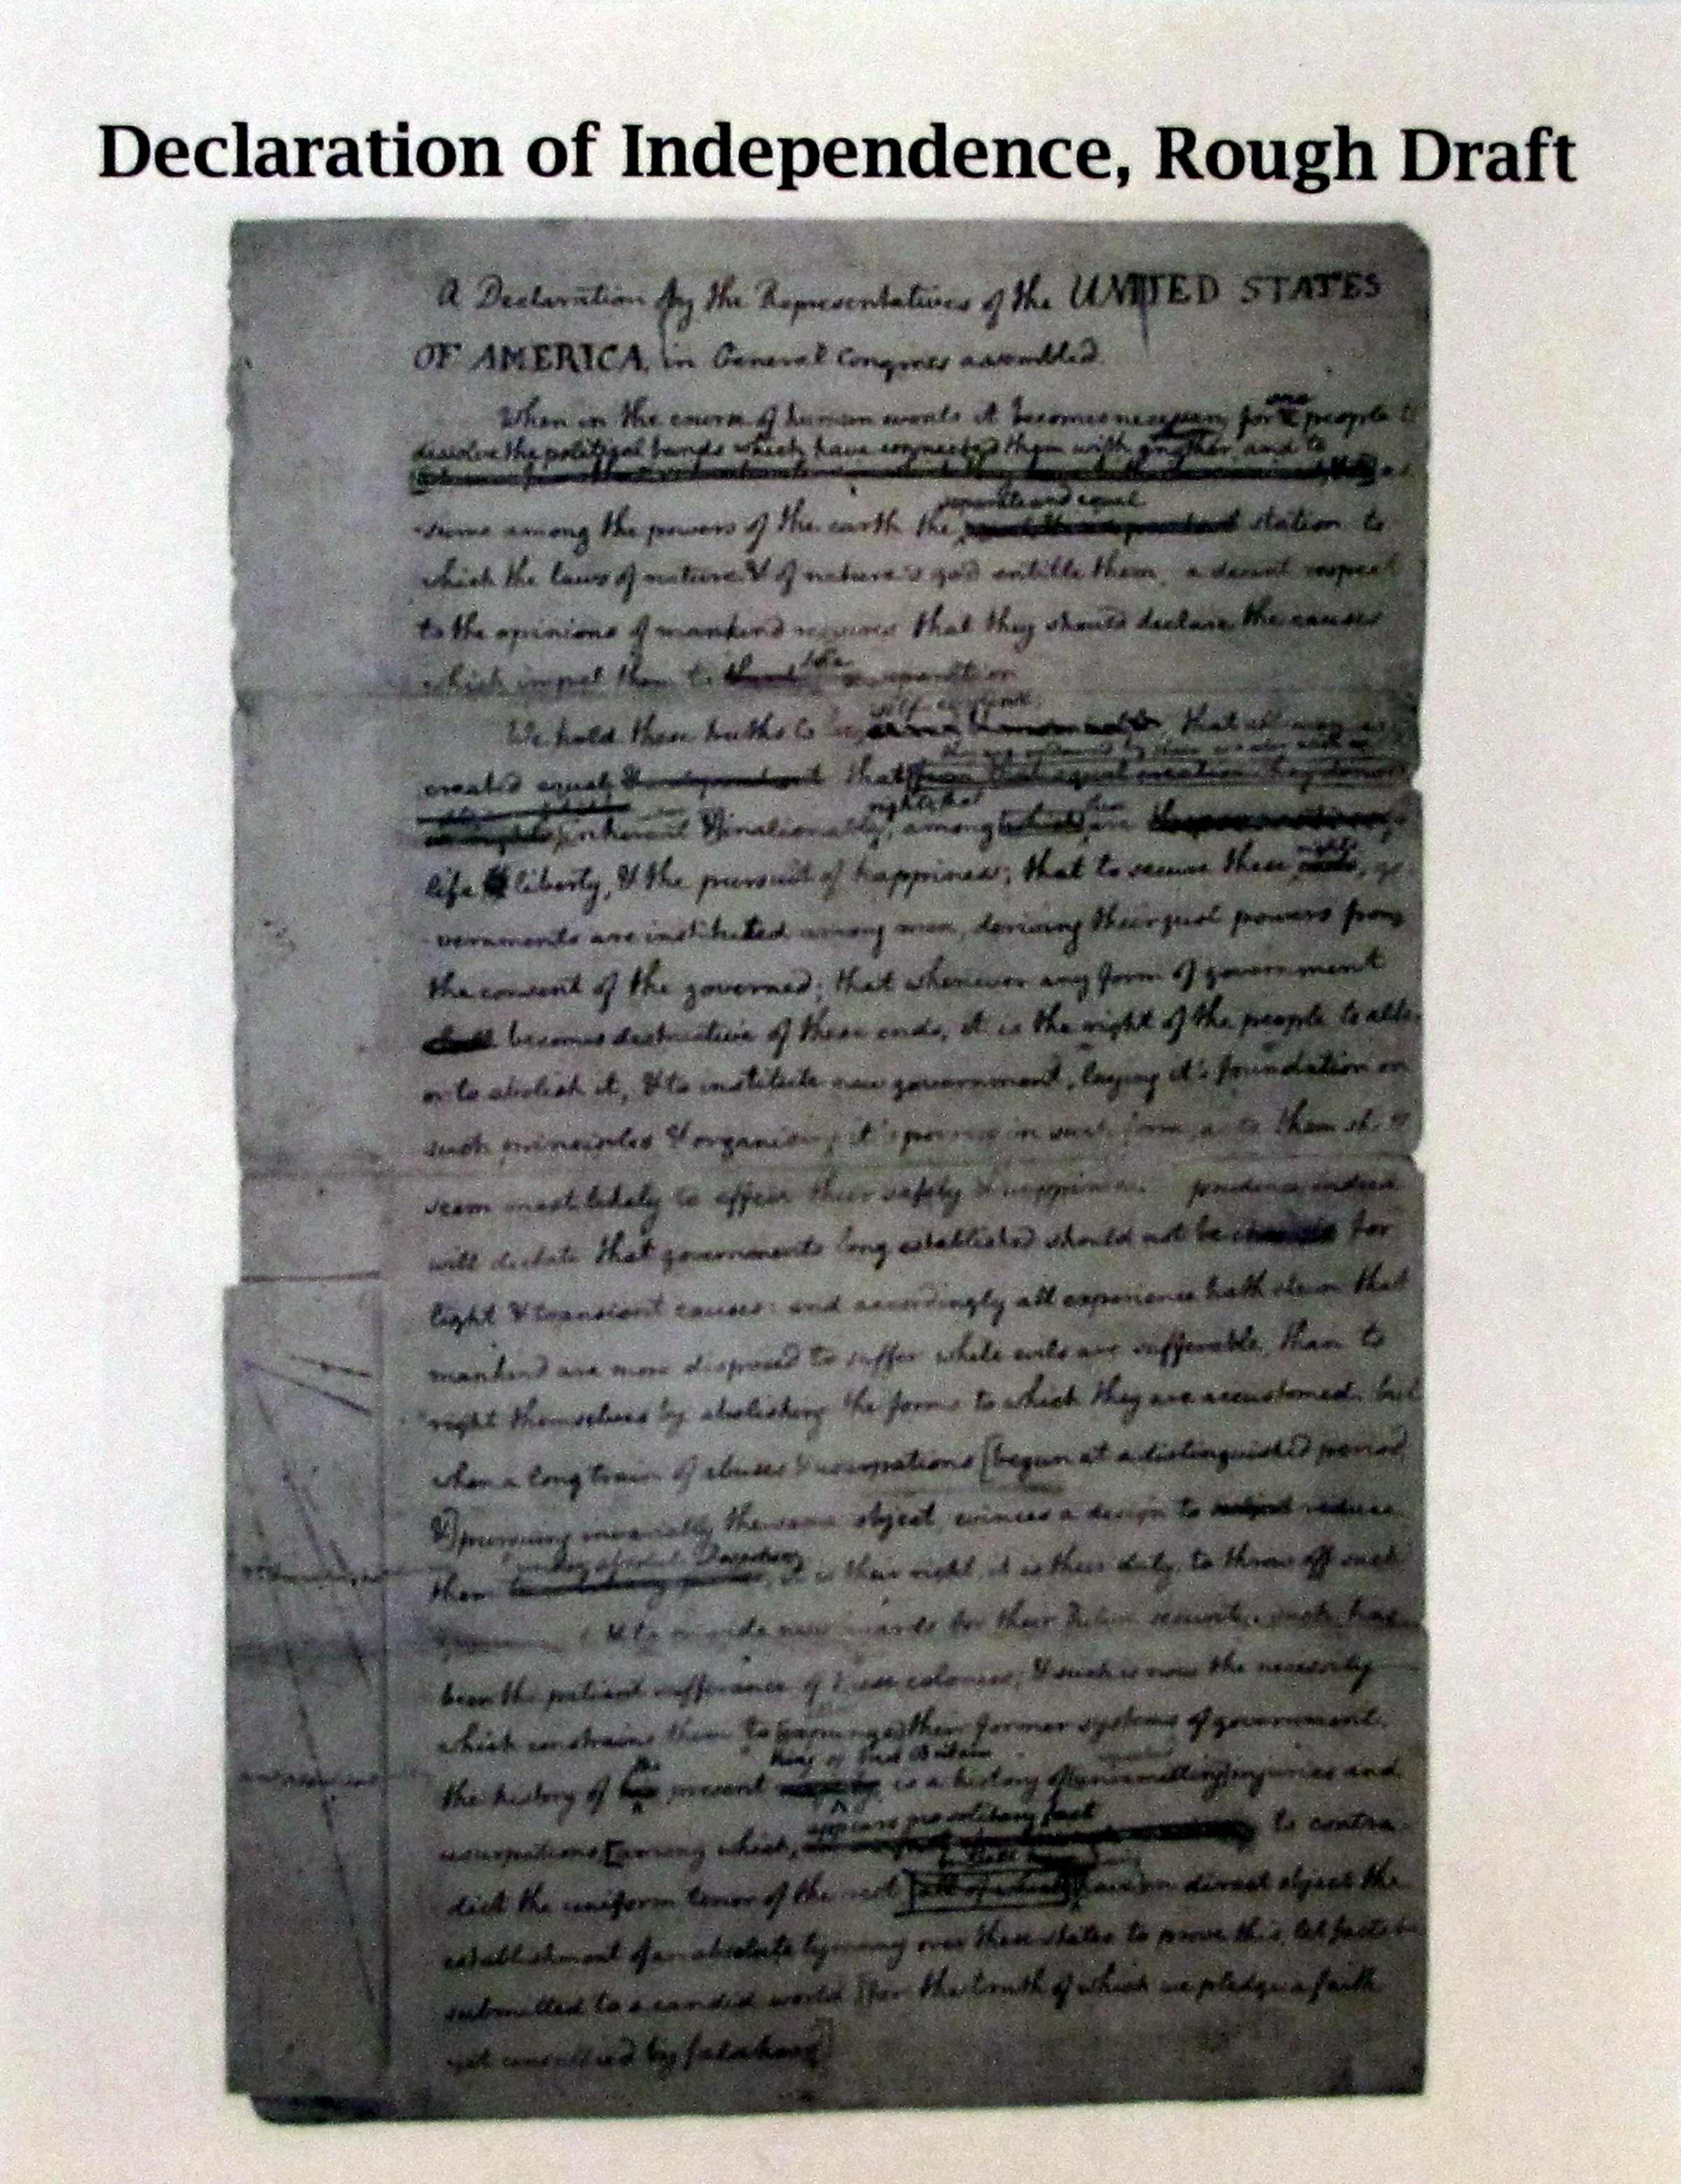 Declaration of Independence, Rough Draft
A Declaration by the Representatives of the UNITED STATES
OF AMERICA, in General Congress assembled.
When in the course of human events it becomes necessary for one people to
dissolve the political bands which have connected them with another, and to
as-
separate and equal
-sume among the powers of the earth the station to
which the laws of nature & of nature's god entitle them, a decent respect
to the opinions of mankind requires that they should declare the causes
which impel them to the separation
self-evident
We hold these truths to be that all men are
created equal & independent that from that equal creation they derive
rights that
inherent & inalienable, among which are
life & liberty, & the pursuit of happiness; that to secure these rights, go-
-vernments are instituted among men, deriving their just powers from
the consent of the governed; that whenever any form of government
shall becomes destructive of these ends, it is the right of the people to alter
or to abolish it, & to institute new government, laying it's foundation on
such principles & organising it's powers in such form, as to them shall
seem most likely to effect their safety & happiness. prudence indeed
will dictate that governments long established should not be changed for
light & transient causes: and accordingly all experience hath shewn that
mankind are more disposed to suffer while evils are sufferable, than to
right themselves by abolishing the forms to which they are accustomed. but
when a long train of abuses & usurpations [begun at a distinguished period,
&] pursuing invariably the same object, evinces a design to subject reduce
under absolute Despotism
them it is their right, it is their duty, to throw off such
& to provide new guards for their future security. such has
been the patient sufferance of these colonies; & such is now the necessity
which constrains them to [expunge] their former systems of government.
the King of Great Britain
the history of his present is a history of [unremitting] injuries and
appears no solitary fact
usurpations, [among which, to contra-
dict the uniform tenor of the rest all of which have in direct object the
establishment of an absolute tyranny over these states. to prove this, let facts be
submitted to a candid world [for the truth of which we pledge a faith
yet unsullied by falsehood]